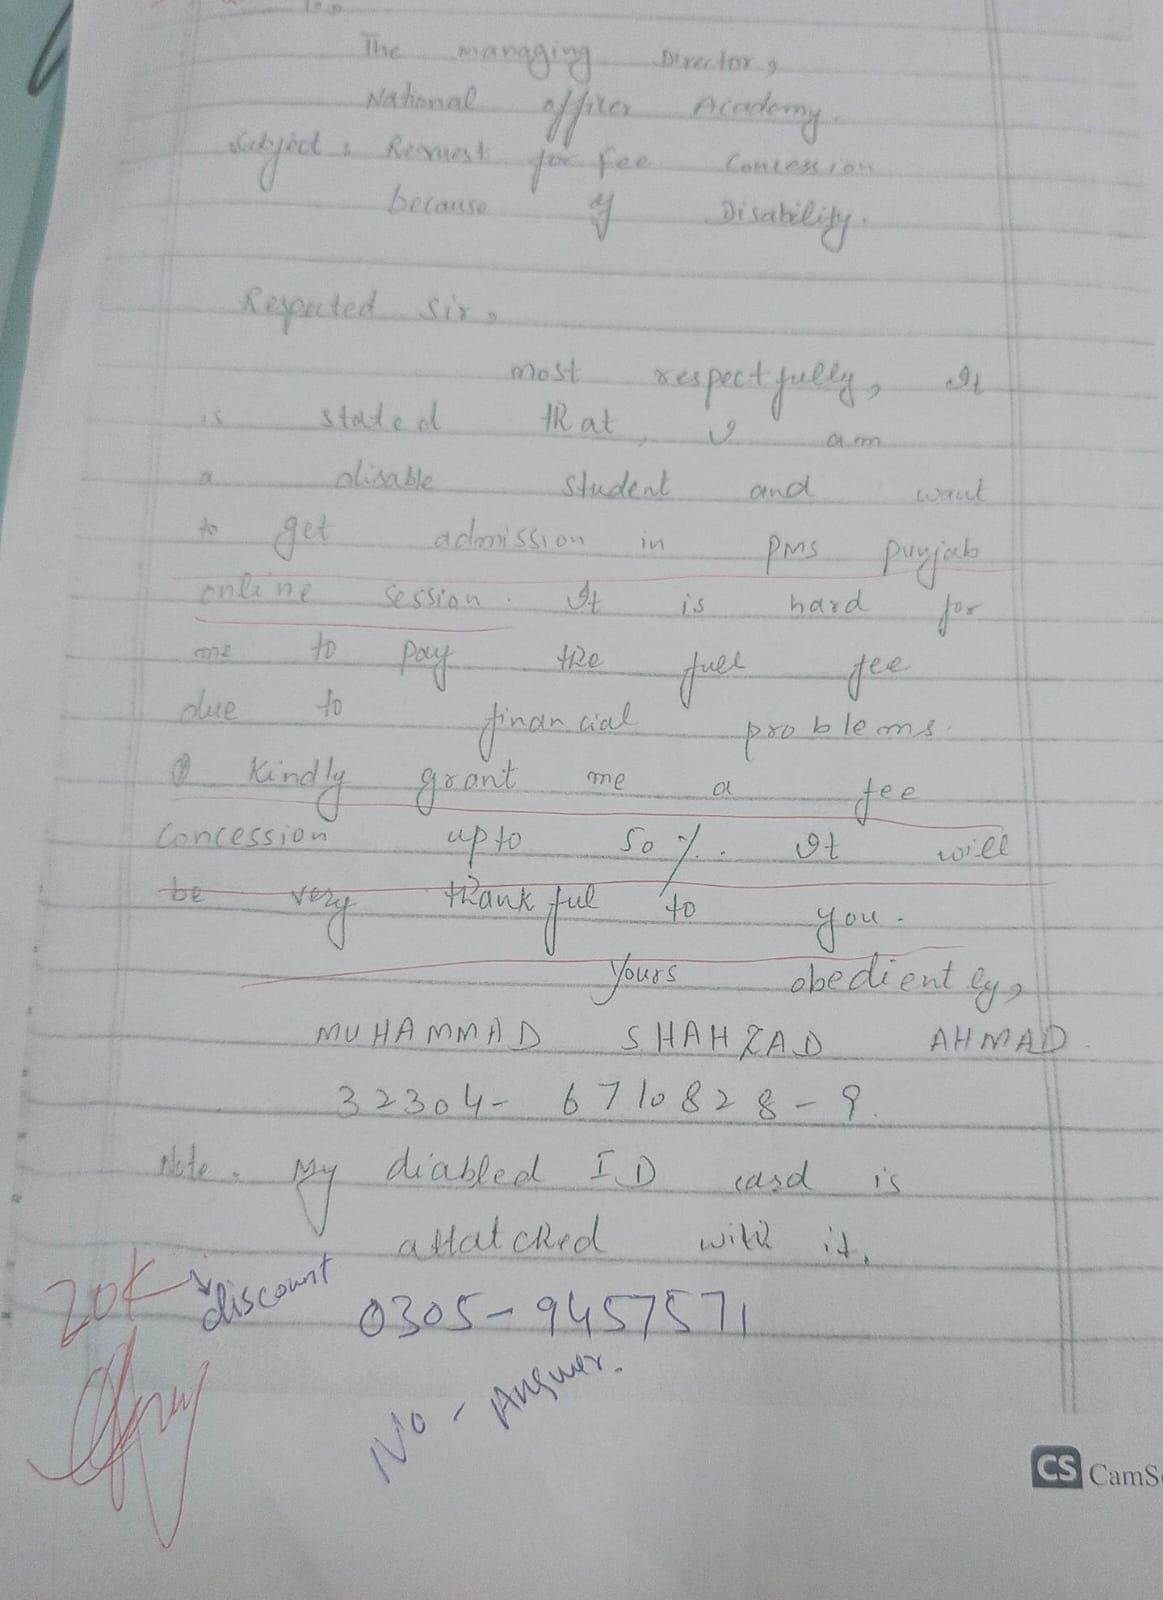 The managing Director,
National officer Academy.
Subject: Request for fee Concession
because of Disability.
Respected Sir,
most respectfully, It
is stated that, I am
a disable student and want
to get admission in PMS punjab
online session. It is hard for
me to pay the full fee
due to financial problems.
Kindly grant me a fee
concession upto 50%. It will
be very thankful to you.
Yours obediently,
MUHAMMAD SHAHZAD AHMAD.
32304-6710828-9.
Note. My diabled ID card is
attatched with it.
20K discount
0305-9457571
No - Answer.
CS CamS